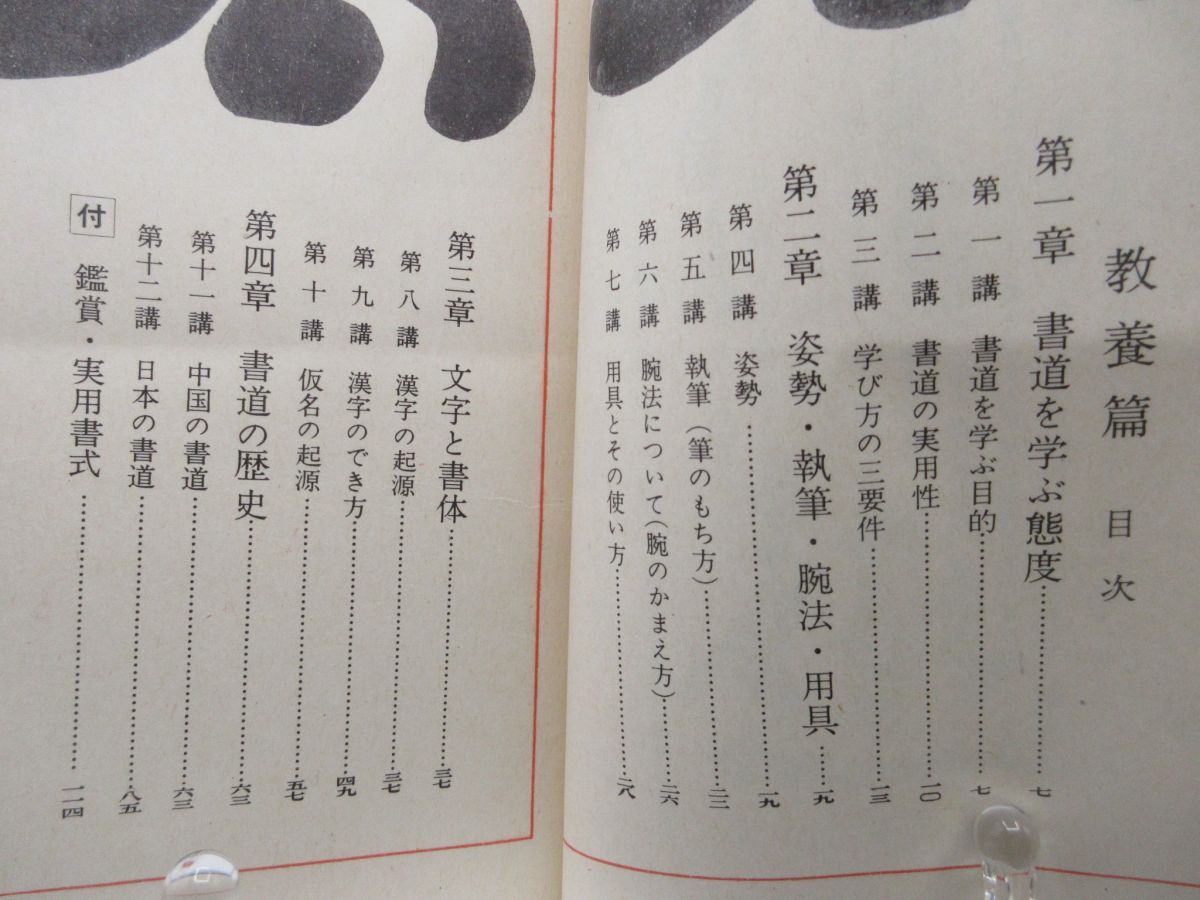 教養篇 目次
第一章 書道を学ぶ態度……七
第一講 書道を学ぶ目的……七
第二講 書道の実用性……一〇
第三講 学び方の三要件……一三
第二章 姿勢・執筆・腕法・用具……一九
第四講 姿勢……一九
第五講 執筆（筆のもち方）……二二
第六講 腕法について（腕のかまえ方）……二六
第七講 用具とその使い方……二八
第三章 文字と書体……三七
第八講 漢字の起源……三七
第九講 漢字のでき方……四九
第十講 仮名の起源……五七
第四章 書道の歴史……六三
第十一講 中国の書道……六三
第十二講 日本の書道……八五
付 鑑賞・実用書式……一一四